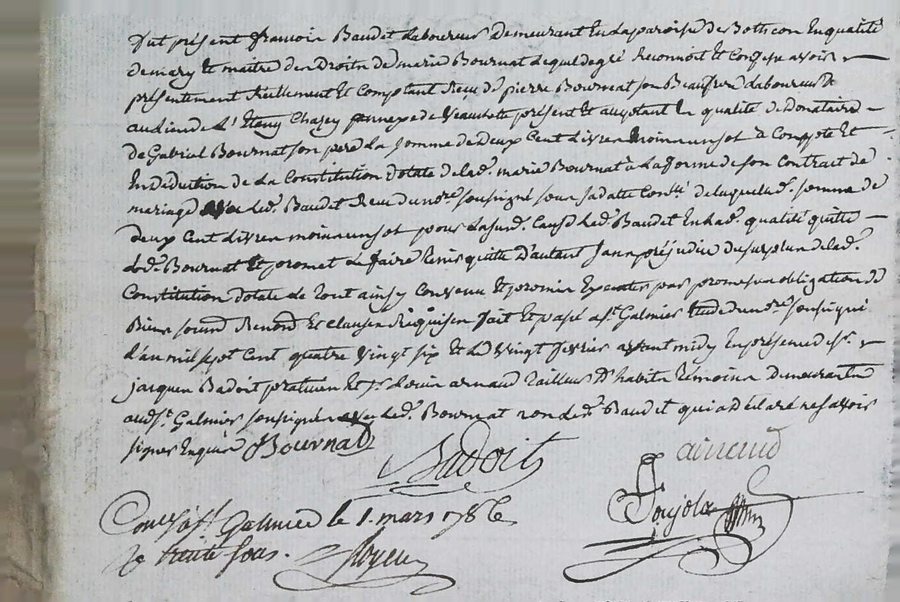 fut présent françois Baudet Laboureur Demeurant En La paroisse de Bothéon En qualité
de mary Et maitre des Droits de marie Bournat Lequel de gré Reconnoit et Confesse avoir
présentement Réellement Et Comptant Reçu de pierre Bournat son Beaufrere Laboureur
au lieu de St Etiény Chazey annexe de Veauchette présent Et acceptant En qualité de Donataire
de Gabriel Bournat son pere La somme de Deux Cent Livres moins un sol à Compte Et
En Déduction de La Constitution dotale de lad. marie Bournat à La forme de son Contract de
mariage Led. Baudet Reçu du nre soussigné sous sa datte de laquelle d. somme de
deux Cent Livres moins un sol pour Led. Baudet En lad. qualité quitte
Led. Bournat Et promet Le faire tenir quitte D'autant sans préjudice du surplus de lad.
Constitution dotale de tout ainsy Convenu Et promis Executer par promesse obligation de
Biens soumis Renond. Et clauses Requises fait Et passé a St Galmier Etude du nre soussigné
L'an mil sept Cent quatre Vingt six Et Le Vingt fevrier avant midy En présence de Sr
jacques Badoit praticien Et Sr Louis arnaud tailleur D'habits témoins Demeurant
aud. St Galmier soussignés avec Led. Bournat non Led. Baudet qui a déclaré ne savoir
signer Enquis Bournat
Badoit
arnaud
Poujola
Con.lé à St Galmier le 1. mars 1786
Rç trente sous.